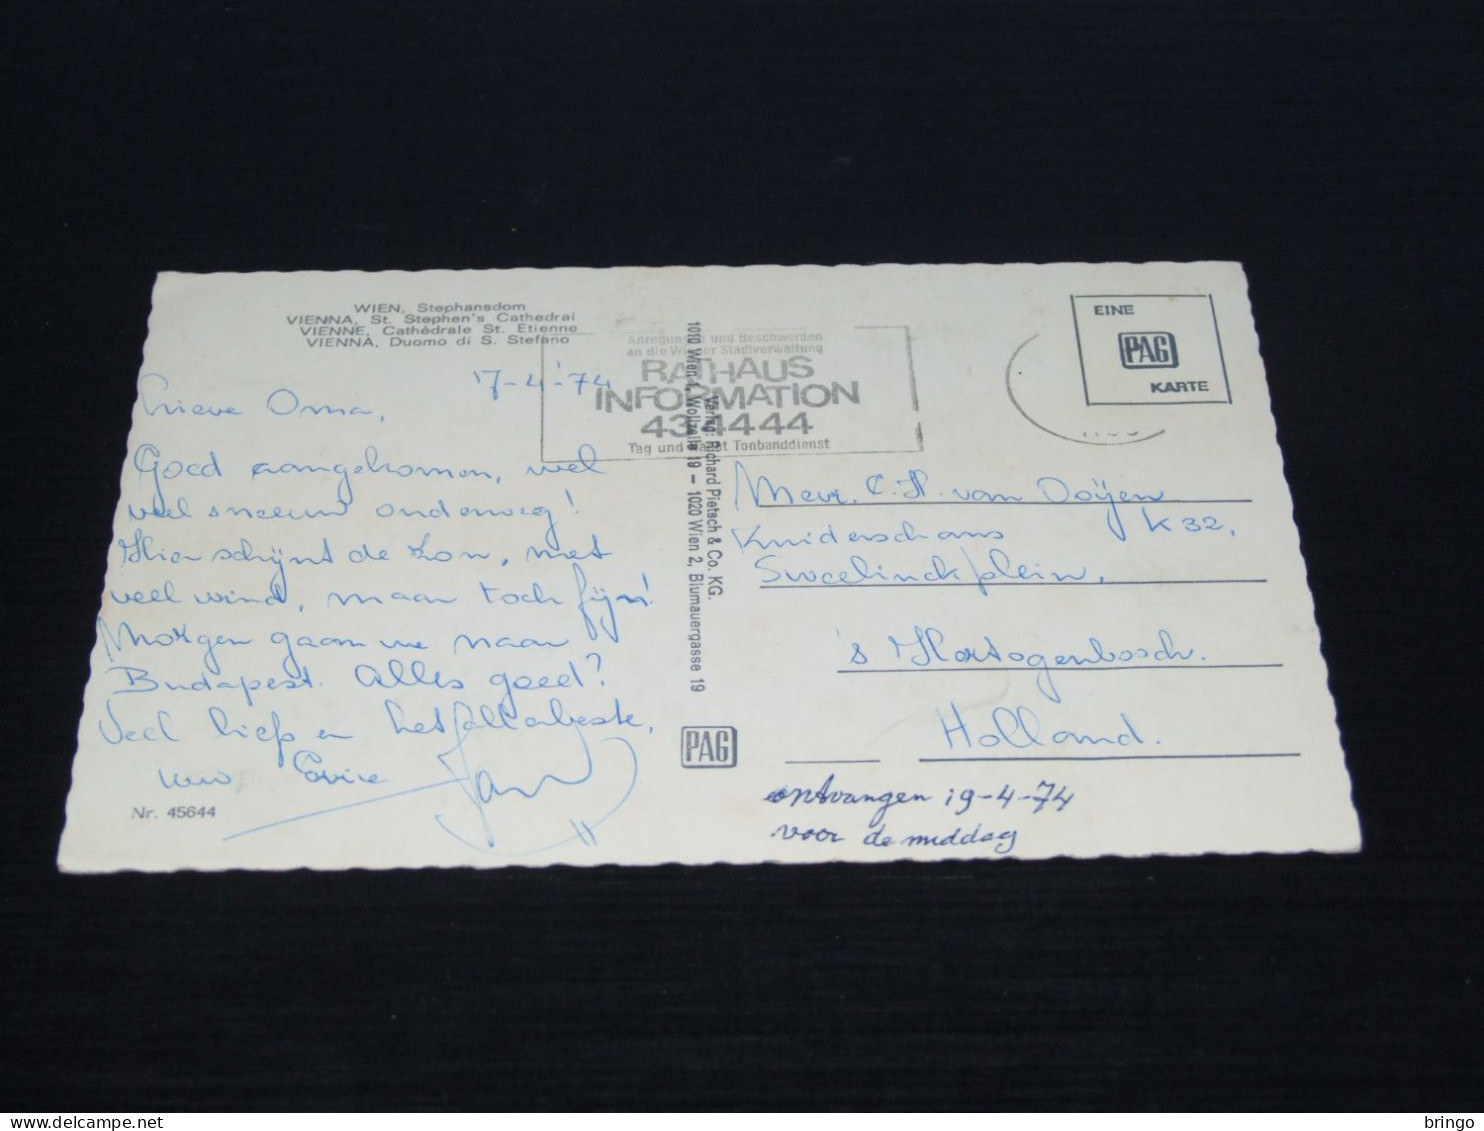 WIEN, Stephansdom
VIENNA, St. Stephen's Cathedral
VIENNE, Cathédrale St. Etienne
VIENNA, Duomo di S. Stefano
Anregungen und Beschwerden
an die Wiener Stadtverwaltung
RATHAUS
INFORMATION
43 44 44
Tag und Nacht Tonbanddienst
EINE
PAG
KARTE
17-4-'74
Lieve Oma,
Goed aangekomen, wel
veel sneeuw onderweg!
Hier schijnt de zon, met
veel wind, maar toch fijn!
Morgen gaan we naar
Budapest. Alles goed?
Veel liefs en het allerbeste,
uw
Jan
Nr. 45644
Verlag: Richard Pietsch & Co. KG.
1010 Wien 1, Wollzeile 19 – 1020 Wien 2, Blumauergasse 19
PAG
Mevr. C. H. van Ooijen
Kruiderschans K 32,
Sweelinckplein,
's Hertogenbosch.
Holland.
ontvangen 19-4-74
voor de middag
delcampe.net
bringo